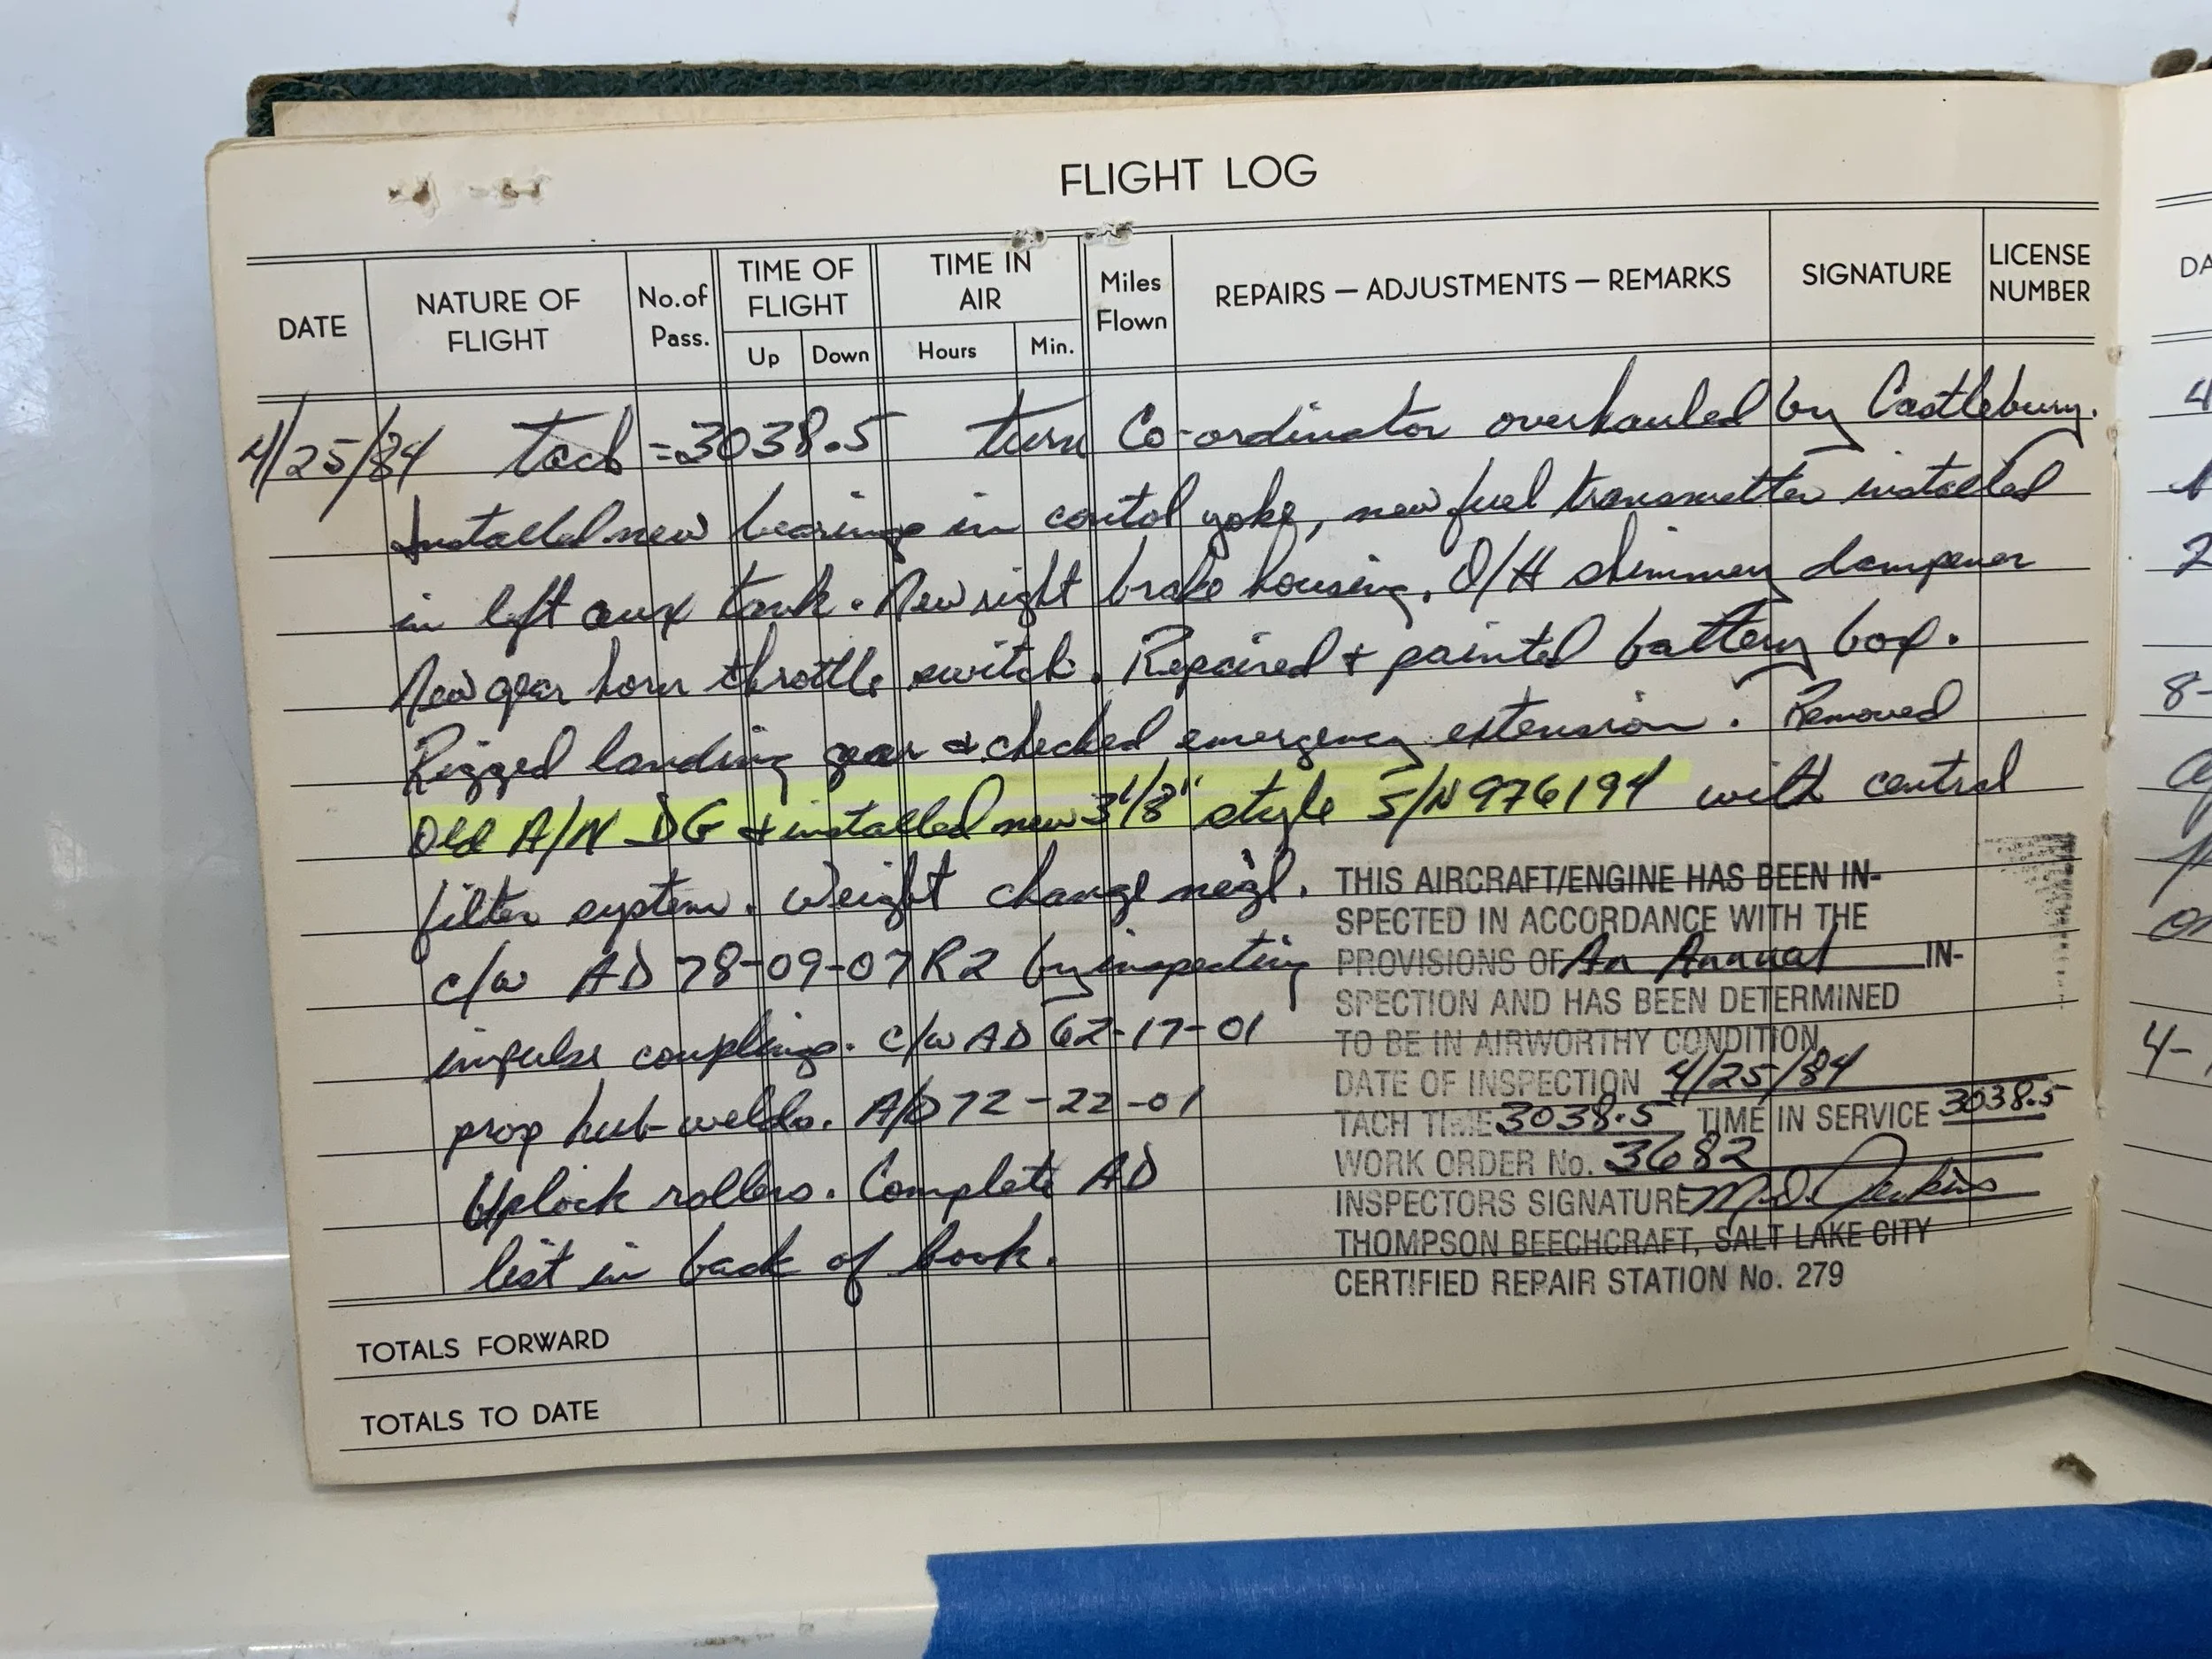 FLIGHT LOG
DATE NATURE OF FLIGHT No. of Pass. TIME OF FLIGHT Up Down TIME IN AIR Hours Min. Miles Flown REPAIRS — ADJUSTMENTS — REMARKS SIGNATURE LICENSE NUMBER
4/25/84 Tach = 3038.5 turn Co-ordinator overhauled by Castlebury.
Installed new bearings in contol yoke, new fuel transmitter installed
in left aux tank. New right brake housing. O/H shimmey dampener
New gear horn throttle switch. Repaired & painted battery box.
Rigged landing gear & checked emergency extension. Removed
Old A/N DG & installed new 3 1/8" style S/N 976194 with central
filter system. Weight change negl.
c/w AD 78-09-07 R2 by inspecting
impulse couplings. c/w AD 62-17-01
prop hub-welds. A/D 72-22-01
Uplock rollers. Complete AD
list in back of book.
THIS AIRCRAFT/ENGINE HAS BEEN IN-
SPECTED IN ACCORDANCE WITH THE
PROVISIONS OF An Annual IN-
SPECTION AND HAS BEEN DETERMINED
TO BE IN AIRWORTHY CONDITION.
DATE OF INSPECTION 4/25/84
TACH TIME 3038.5 TIME IN SERVICE 3038.5
WORK ORDER No. 3682
INSPECTORS SIGNATURE M.D. Jenkins
THOMPSON BEECHCRAFT, SALT LAKE CITY
CERTIFIED REPAIR STATION No. 279
TOTALS FORWARD
TOTALS TO DATE
DA
4
2
8-
4-